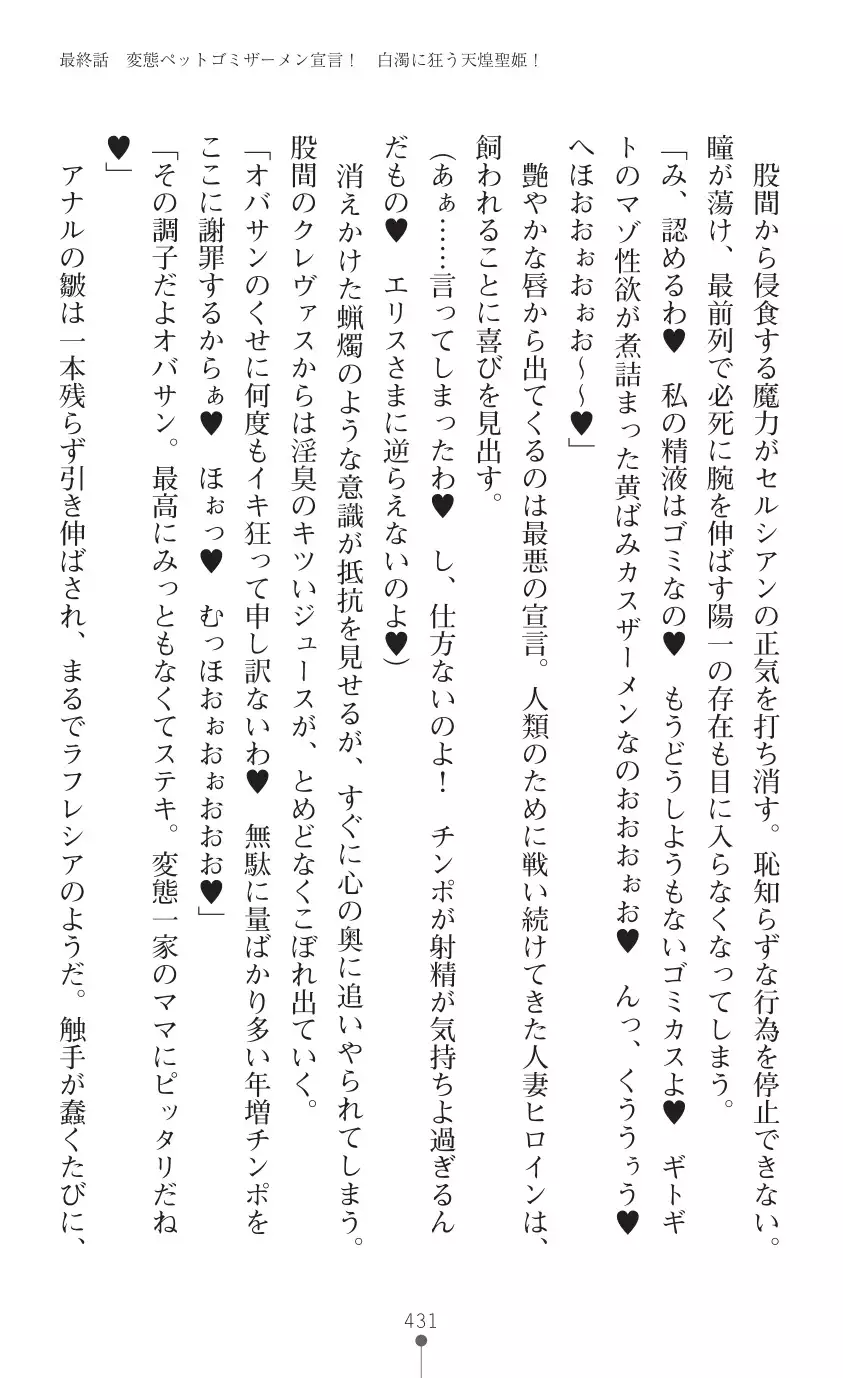 最終話　変態ペットゴミザーメン宣言！　白濁に狂う天煌聖姫！
股間から侵食する魔力がセルシアンの正気を打ち消す。恥知らずな行為を停止できない。
瞳が蕩け、最前列で必死に腕を伸ばす陽一の存在も目に入らなくなってしまう。
「み、認めるわ♥　私の精液はゴミなの♥　もうどうしようもないゴミカスよ♥　ギトギ
トのマゾ性欲が煮詰まった黄ばみカスザーメンなのおおおぉお♥　んっ、くううぅう♥
へほおおぉおぉお～～♥」
艶やかな唇から出てくるのは最悪の宣言。人類のために戦い続けてきた人妻ヒロインは、
飼われることに喜びを見出す。
（あぁ……言ってしまったわ♥　し、仕方ないのよ！　チンポが射精が気持ちよ過ぎるん
だもの♥　エリスさまに逆らえないのよ♥）
消えかけた蝋燭のような意識が抵抗を見せるが、すぐに心の奥に追いやられてしまう。
股間のクレヴァスからは淫臭のキツいジュースが、とめどなくこぼれ出ていく。
「オバサンのくせに何度もイキ狂って申し訳ないわ♥　無駄に量ばかり多い年増チンポを
ここに謝罪するからぁ♥　ほぉっ♥　むっほおぉおぉおおお♥」
「その調子だよオバサン。最高にみっともなくてステキ。変態一家のママにピッタリだね
♥」
アナルの皺は一本残らず引き伸ばされ、まるでラフレシアのようだ。触手が蠢くたびに、
431